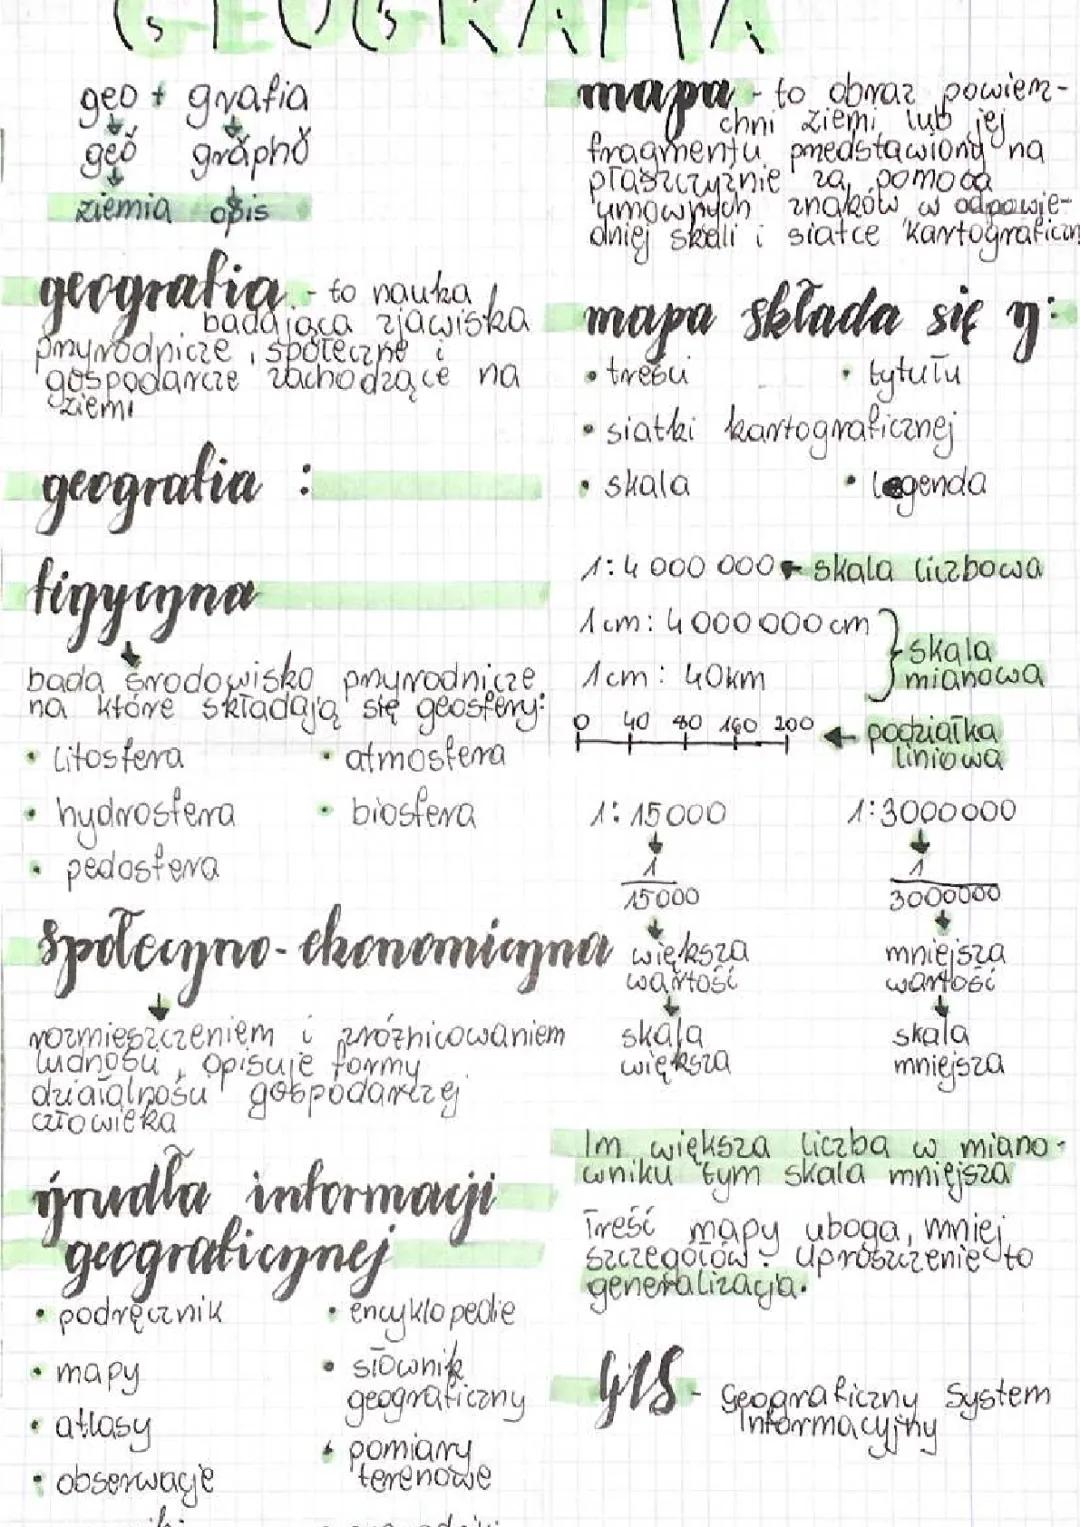 GEOGRAFIA
geo + grafia
geŏ grăphŏ
ziemia opis
geografia - to nauka
badająca zjawiska
przyrodnicze, społeczne i
gospodarcze zachodzące na
ziemi
geografia :
fizyczna
bada środowisko przyrodnicze,
na które składają się geosfery:
• litosfera
• atmosfera
• hydrosfera
• biosfera
• pedosfera
społeczno-ekonomiczna
rozmieszczeniem i zróżnicowaniem
ludności, opisuje formy
działalności gospodarczej
człowieka
źrudła informacji
geograficznej
• podręcznik
• encyklopedie
• mapy
• słownik
geograficzny
• atlasy
• pomiary
terenowe
• obserwacje
mapa - to obraz powierz-
chni ziemi, lub jej
fragmentu przedstawiony na
płaszczyźnie za pomocą
umownych znaków w odpowie-
dniej skali i siatce kartograficzn
mapa składa się z:
• treści
• tytułu
• siatki kartograficznej
• skala
• legenda
1:4 000 000 ← skala liczbowa
1 cm: 4 000 000 cm
1 cm: 40km
skala
mianowa
0 40 80 160 200 ← podziałka
liniowa
1: 15 000
1:3000000
1
15000
1
3000000
większa
wartość
mniejsza
wartość
skala
większa
skala
mniejsza
Im większa liczba w miano-
wniku tym skala mniejsza
Treść mapy uboga, mniej
szczegółów. Uproszczenie to
generalizacja.
GIS - Geograficzny System
Informacyjny